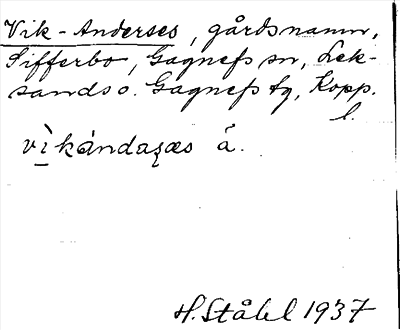 Vik-Anderses, gårdsnamn,
Sifferbo, Gagnefs sn, Lek-
sands o. Gagnefs tg, Kopp.
l.
vìkándaʒæs å.
H. Ståhl 1937